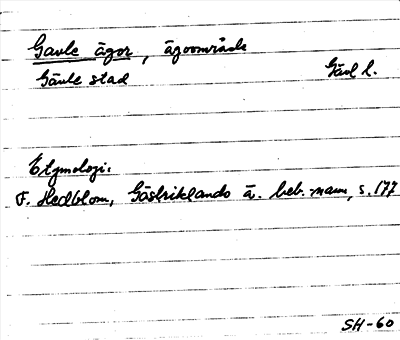 Gavle ägor, ägoområde
Gävle stad Gävl l.
Etymologi:
F. Hedblom, Gästriklands ä. beb. namn, s. 177
SH-60